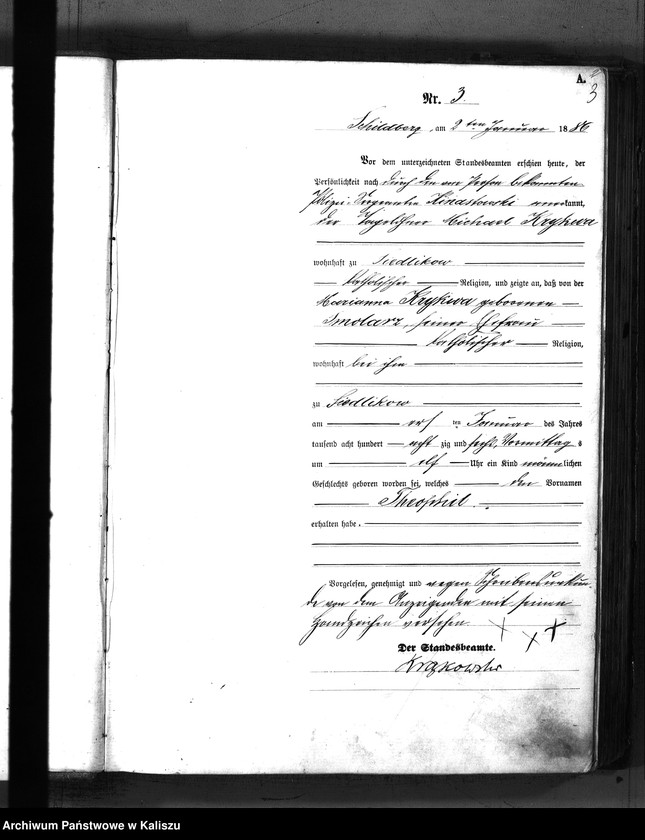 A.
3
Nr. 3.
Schildberg, am 2ten Januar 1886
Vor dem unterzeichneten Standesbeamten erschien heute, der
Persönlichkeit nach durch den von Person bekannten
Polizei-Sergeanten anerkannt,
der Tagelöhner Michael Krykwa
wohnhaft zu Siedlikow
katholischer Religion, und zeigte an, daß von der
Marianna Krykwa geborenen
Smolarz, seiner Ehefrau
katholischer Religion,
wohnhaft bei ihm
zu Siedlikow
am ersten Januar des Jahres
tausend acht hundert achtzig und sechs, Vormittags
um elf Uhr ein Kind männlichen
Geschlechts geboren worden sei, welches den Vornamen
Theophil
erhalten habe.
Vorgelesen, genehmigt und wegen Schreibensunkun-
de von dem Anzeigenden mit seinem
Handzeichen versehen
Der Standesbeamte.
Archiwum Państwowe w Kaliszu